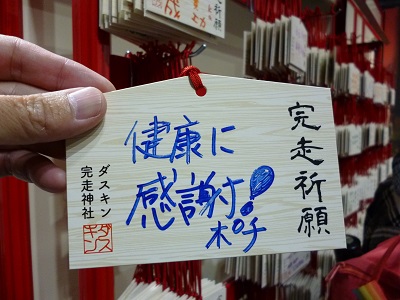 完走祈願
健康に
感謝!
ポチ
ダスキン
完走神社
ダス
キン